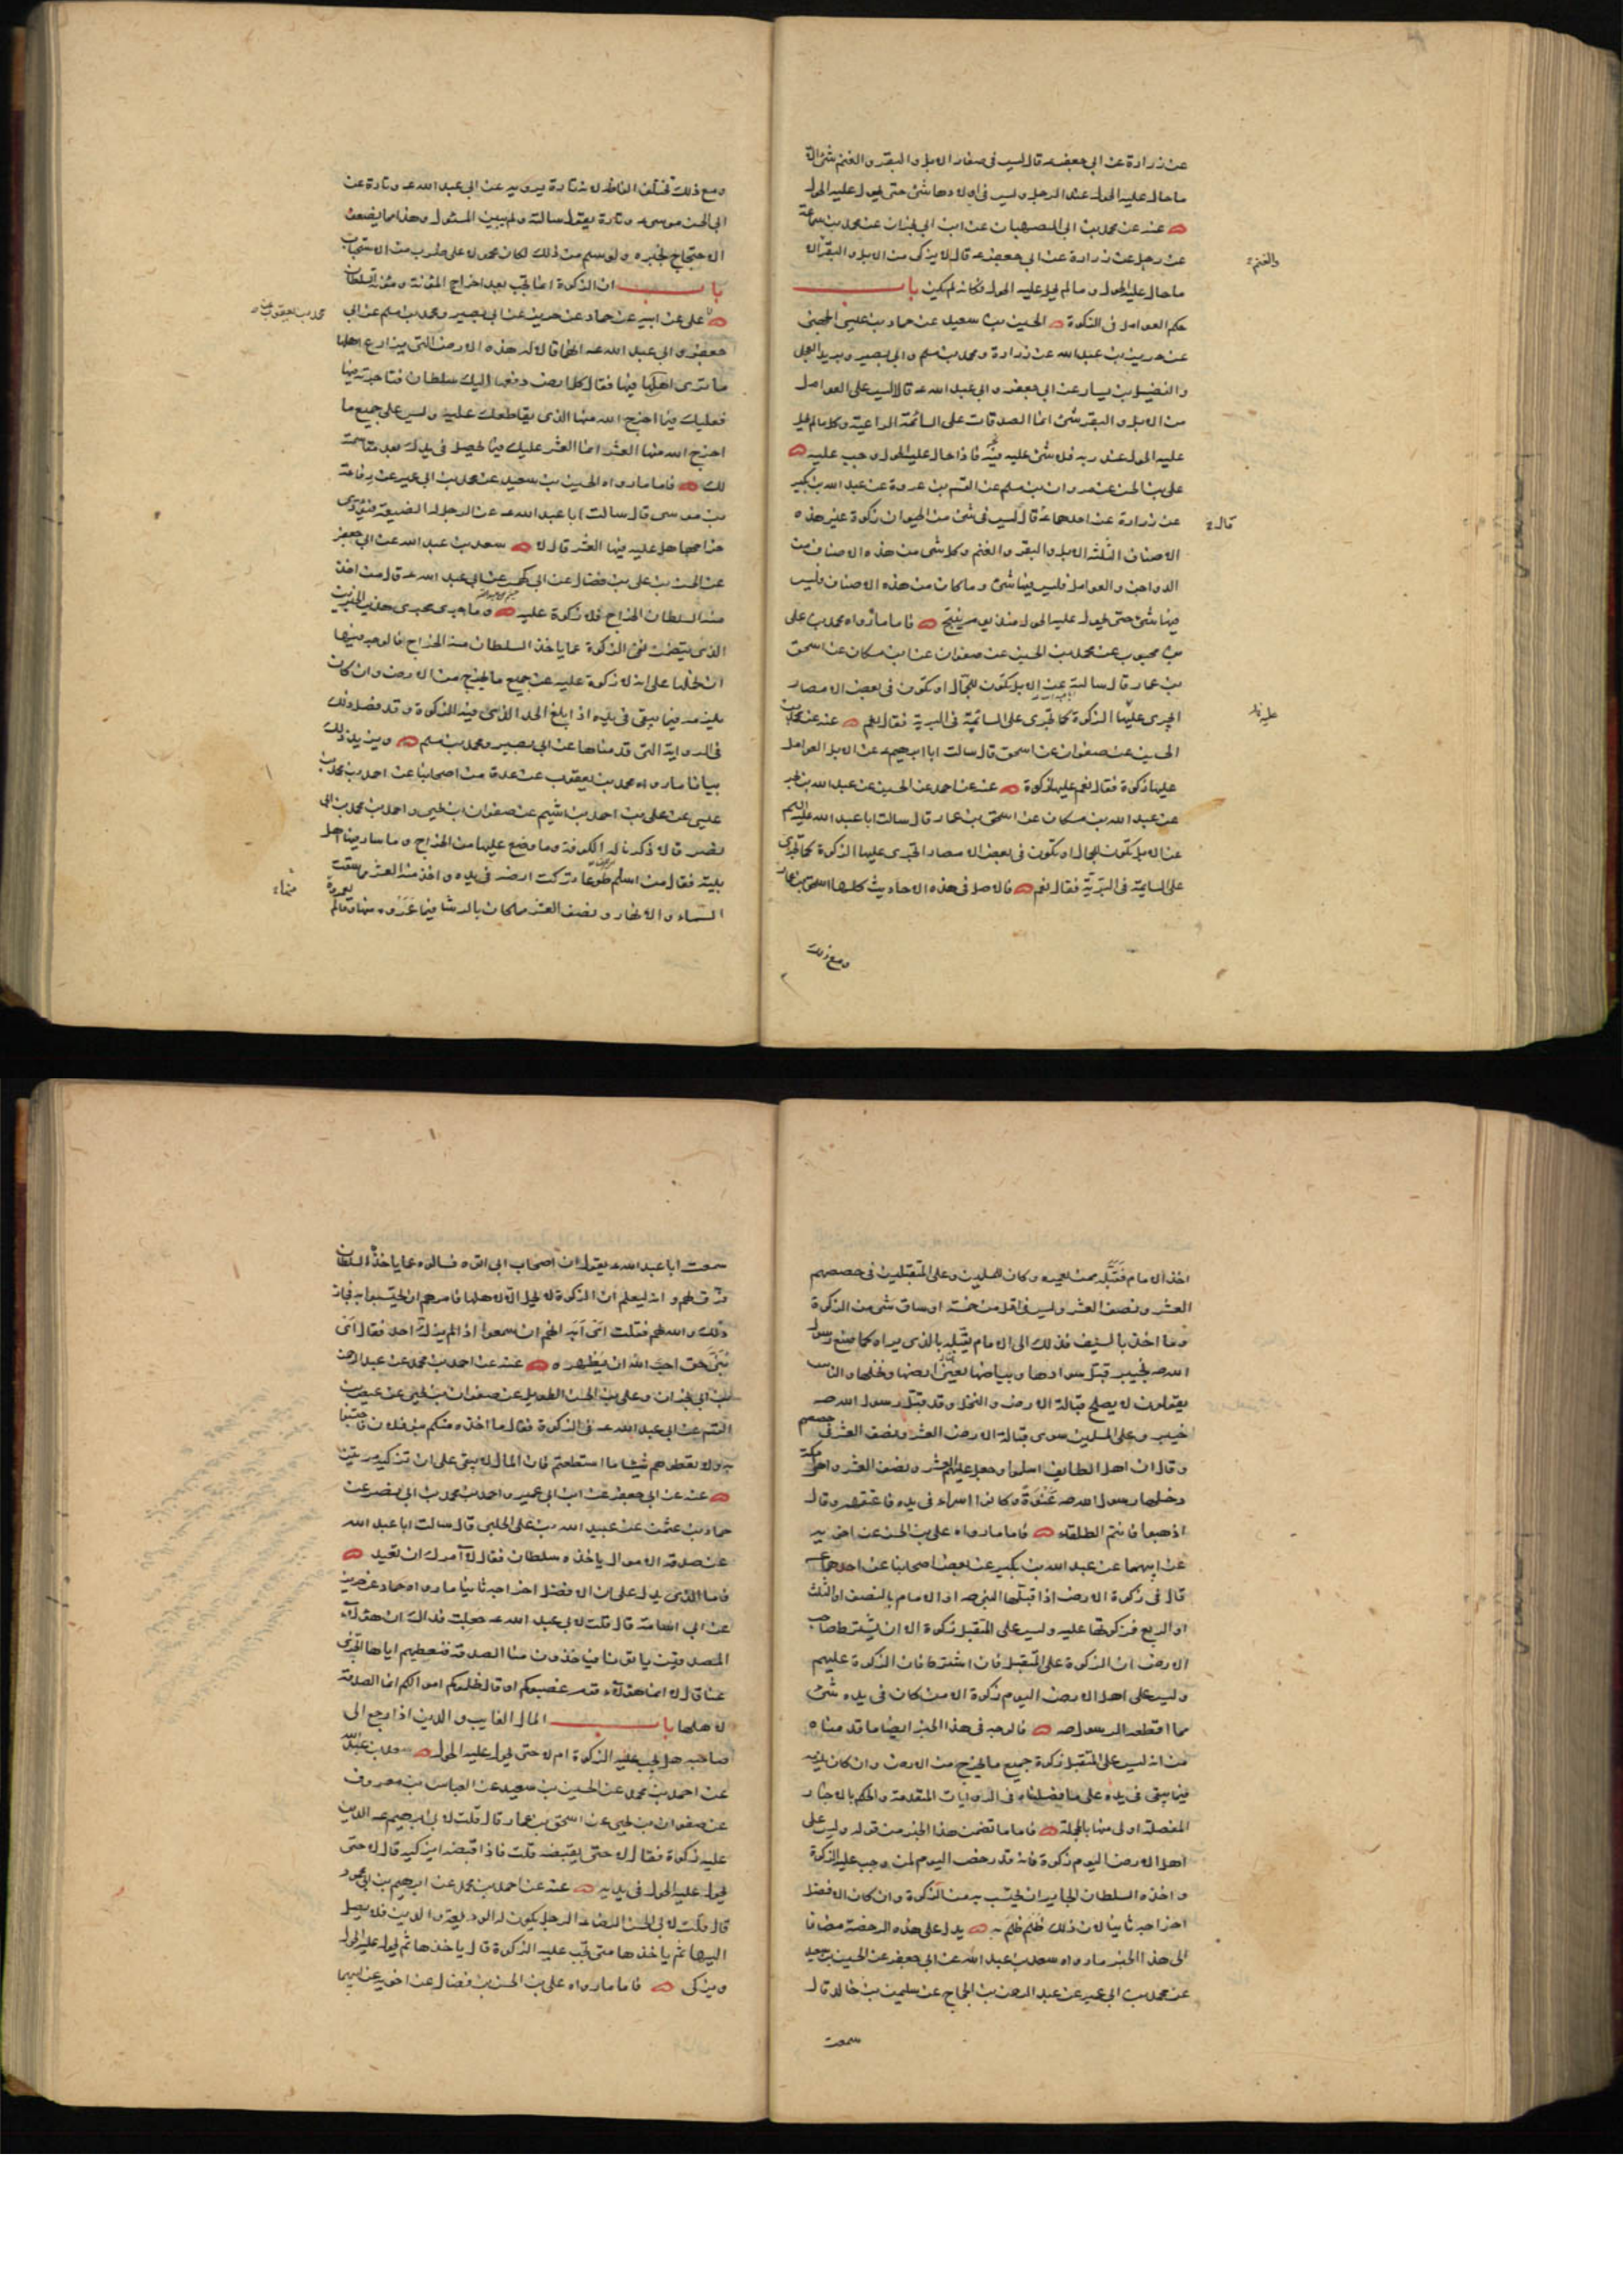 عن زرارة عن ابي جعفر ع قال ليس في صغار الابل والبقر والغنم شئ الا
ما حال عليه الحول عند الرجل وليس في اولادها شئ حتى يحول عليه الحول
عنه عن محمد بن ابي الصهبان عن ابن ابي نجران عن محمد بن سماعة
عن رجل عن زرارة عن ابي جعفر ع قال لا يزكى من الابل والبقر الا
والغنم
ما حال عليه الحول وما لم يحل عليه الحول فكانه لم يكن باب
حكم العوامل في الزكوة الحسين بن سعيد عن حماد بن عيسى الجهني
عن حريز بن عبد الله عن زرارة ومحمد بن مسلم وابي بصير وبريد العجلي
والفضيل بن يسار عن ابي جعفر وابي عبد الله ع قالا ليس على العوامل
من الابل والبقر شئ انما الصدقات على السائمة الراعية وكلما لم يحل
عليه الحول عند ربه فلا شئ عليه فيه فاذا حال عليه الحول وجب عليه
علي بن الحسن عن هرون بن مسلم عن القسم بن عروة عن عبد الله بن بكير
عن زرارة عن احدهما ع قال ليس في شئ من الحيوان زكوة غير هذه
قال
الاصناف الثلثة الابل والبقر والغنم وكل شئ من هذه الاصناف من
الدواجن والعوامل فليس فيها شئ وما كان من هذه الاصناف فليس
فيها شئ حتى يحول عليه الحول منذ يوم ينتج فاما ما رواه محمد بن علي
بن محبوب عن محمد بن الحسين عن صفوان عن ابن مسكان عن اسحق
بن عمار قال سالته عن الابل تكون للجمال او تكون في بعض الامصار
اتجرى عليها الزكوة كما تجرى على السائمة في البرية فقال نعم عنه عن محمد بن
الحسين عن صفوان عن اسحق قال سالت ابا ابرهيم ع عن الابل العوامل
عليها زكوة فقال نعم عليها زكوة عنه عن احمد عن الحسين عن عبد الله بن بحر
عن عبد الله بن مسكان عن اسحق بن عمار قال سالت ابا عبد الله عليه السلم
عن الابل تكون للجمال او تكون في بعض الامصار اتجرى عليها الزكوة كما تجرى
على السايمة في البرية فقال نعم فالاصل في هذه الاحاديث كلها اسحق بن عمار
ومع ذلك
ومع ذلك فتختلف الفاظه لانه تارة يرويه عن ابي عبد الله ع وتارة عن
ابي الحسن موسى ع وتارة يقول سالته ولم يبين المسئول وهذا مما يضعف
الاحتجاج بخبره ولو سلم من ذلك لكان محمولا على ضرب من الاستحباب
باب ان الزكوة انما تجب بعد اخراج المؤنة ومؤنة السلطان
محمد بن يعقوب عن
علي عن ابيه عن حماد عن حريز عن ابي بصير ومحمد بن مسلم عن ابي
جعفر وابي عبد الله ع انهما قالا له هذه الارض التي يزارع اهلها
ما ترى اهلها فيها فقال كل ارض دفعها اليك سلطان فتاجرته فيها
فعليك فيما اخرج الله منها الذي يقاطعك عليه وليس على جميع ما
اخرج الله منها العشر انما العشر عليك فيما يحصل في يدك بعد مقاسمته
لك فاما ما رواه الحسين بن سعيد عن محمد بن ابي عمير عن رفاعة
بن موسى قال سالت ابا عبد الله ع عن الرجل له الضيعة فيؤدى
خراجها هل عليه فيها العشر قال لا سعد بن عبد الله عن ابي جعفر
عن الحسن بن علي بن فضال عن ابي كهمس عن ابي عبد الله ع قال من اخذ
منه السلطان الخراج فلا زكوة عليه وما جرى مجرى هذين الخبرين
الذي يتضمن نفى الزكوة عما ياخذ السلطان منه الخراج فالوجه فيها
ان نحملها على انه لا زكوة عليه عن جميع ما يخرج من الارض وان كان
يلزمه فيما يبقى في يده اذا بلغ الحد الذي فيه الزكوة وقد فصل ذلك
في الرواية التي قدمناها عن ابي بصير ومحمد بن مسلم ويزيد ذلك
بيانا ما رواه محمد بن يعقوب عن عدة من اصحابنا عن احمد بن محمد بن
عيسى عن علي بن احمد بن اشيم عن صفوان بن يحيى واحمد بن محمد بن ابي
نصر قالا ذكرنا له الكوفة وما وضع عليها من الخراج وما سار فيها اهل
بيته فقال من اسلم طوعا تركت ارضه في يده واخذ منه العشر مما سقت
السماء والانهار ونصف العشر مما كان بالرشا فيما عمروه منها وما لم
اخذ الامام فقبله ممن يعمره وكان للمسلمين وعلى المتقبلين في حصصهم
العشر ونصف العشر وليس في اقل من خمسة اوساق شئ من الزكوة
وما اخذ بالسيف فذلك الى الامام يقبله بالذي يراه كما صنع رسول
الله ص بخيبر قبل سوادها وبياضها يعني ارضها ونخلها والناس
يقولون لا يصلح قبالة الارض والنخل وقد قبل رسول الله ص
خيبر وعلى المسلمين سوى قبالة الارض العشر ونصف العشر في حصصهم
وقال ان اهل الطايف اسلموا وجعل عليهم العشر ونصف العشر واهل مكة
دخلها رسول الله ص عنوة وكانوا اسراء في يده فاعتقهم وقال
اذهبوا فانتم الطلقاء فاما ما رواه علي بن الحسن عن اخويه
عن ابيهما عن عبد الله بن بكير عن بعض اصحابنا عن احدهما ع
قال في زكوة الارض اذا قبلها النبي ص او الامام بالنصف او الثلث
او الربع فزكوتها عليه وليس على المتقبل زكوة الا ان يشترط صاحب
الارض ان الزكوة على المتقبل فان اشترط فان الزكوة عليهم
وليس على اهل الارض اليوم زكوة الا من كان في يده شئ
مما اقطعه الرسول ص فالوجه في هذا الخبر ايضا ما قدمناه
من انه ليس على المتقبل زكوة جميع ما يخرج من الارض وان كان يلزمه
فيما يبقى في يده على ما فصلناه في الروايات المتقدمة والحكم بالاخبار
المفصلة اولى منها بالمجملة فاما ما تضمن هذا الخبر من قوله وليس على
اهل الارض اليوم زكوة فانه قد رخص اليوم لمن وجب عليه الزكوة
واخذه السلطان الجاير ان يحتسب به من الزكوة وان كان الافضل
اخراجه ثانيا لان ذلك ظلم ظلم به يدل على هذه الرخصة مضافا
الى هذا الخبر ما رواه سعد بن عبد الله عن ابي جعفر عن الحسين بن سعيد
عن محمد بن ابي عمير عن عبد الرحمن بن الحجاج عن سليمن بن خالد قال
سمعت
سمعت ابا عبد الله ع يقول ان اصحاب ابي اتوه فسالوه عما ياخذه السلطان
فرق لهم وانه ليعلم ان الزكوة لا تحل الا لاهلها فامرهم ان يحتسبوا به فجاز
ذلك والله لهم فقلت اى ابه انهم ان سمعوا اذا لم يزك احد فقال اى
بنى حق احب الله ان يظهره عنه عن احمد بن محمد عن عبد الرحمن
بن ابي نجران وعلي بن الحسن الطويل عن صفوان بن يحيى عن عيص بن
القسم عن ابي عبد الله ع في الزكوة فقال ما اخذه منكم بنو فلان فاحتسبوا
به ولا تعطوهم شيئا ما استطعتم فان المال لا يبقى على ان تزكيه مرتين
عنه عن ابي جعفر عن ابن ابي عمير واحمد بن محمد بن ابي نصر عن
حماد بن عثمن عن عبيد الله بن علي الحلبي قال سالت ابا عبد الله
عن صدقة الاموال ياخذه سلطان فقال لا آمرك ان تعيد
فاما الذي يدل على ان الافضل اخراجه ثانيا ما رواه حماد عن حريز
عن ابي اسامة قال قلت لابي عبد الله ع جعلت فداك ان هؤلاء
المصدقين ياتوننا فياخذون منا الصدقة فنعطيهم اياها اتجزى
عنا قال لا انما هؤلاء قوم غصبوكم او قال ظلموكم اموالكم انما الصدقة
لاهلها باب المال الغايب والدين اذا رجع الى
صاحبه هل يجب عليه الزكوة ام لا حتى يحول عليه الحول سعد بن عبد الله
عن احمد بن محمد عن الحسين بن سعيد عن العباس بن معروف
عن صفوان بن يحيى عن اسحق بن عمار قال قلت لابي ابرهيم ع الدين
عليه زكوة فقال لا حتى يقبضه قلت فاذا قبضه ايزكيه قال لا حتى
يحول عليه الحول في يديه عنه عن احمد بن محمد عن ابرهيم بن ابي محمود
قال قلت لابي الحسن الرضا ع الرجل يكون له الوديعة والدين فلا يصل
اليهما ثم ياخذهما متى تجب عليه الزكوة قال ياخذهما ثم يحول عليه الحول
ويزكى فاما ما رواه علي بن الحسن بن فضال عن اخويه عن ابيهما